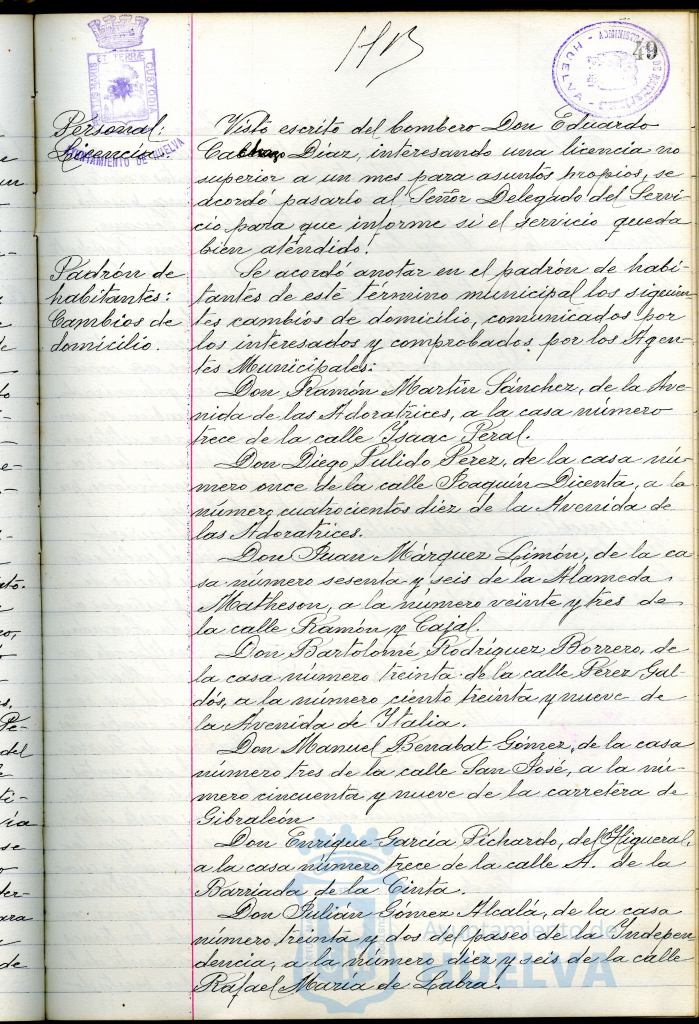 49
Personal:
Licencia.
AYUNTAMIENTO DE HUELVA
HUELVA
Visto escrito del bombero Don Eduardo
Díaz, interesando una licencia no
superior a un mes para asuntos propios, se
acordó pasarlo al Señor Delegado del Servi-
cio para que informe si el servicio queda
bien atendido.
Padrón de
habitantes:
Cambios de
domicilio.
Se acordó anotar en el padrón de habi-
tantes de este término municipal los siguien-
tes cambios de domicilio, comunicados por
los interesados y comprobados por los Agen-
tes Municipales:
Don Ramón Martín Sánchez, de la Ave-
nida de las Adoratrices, a la casa número
trece de la calle Isaac Peral.
Don Diego Pulido Pérez, de la casa nú-
mero once de la calle Joaquín Dicenta, a la
número cuatrocientos diez de la Avenida de
las Adoratrices.
Don Juan Márquez Limón, de la ca-
sa número sesenta y seis de la Alameda
Matheson, a la número veinte y tres de
la calle Ramón y Cajal.
Don Bartolomé Rodríguez Borrero, de
la casa número treinta de la calle Pérez Gal-
dós, a la número ciento treinta y nueve de
la Avenida de Italia.
Don Manuel Benabat Gómez, de la casa
número tres de la calle San José, a la nú-
mero cincuenta y nueve de la carretera de
Gibraleón
Don Enrique García Pichardo, del Higueral,
a la casa número trece de la calle A. de la
Barriada de la Cinta.
Don Julián Gómez Alcalá, de la casa
número treinta y dos del paseo de la Indepen
dencia, a la número diez y seis de la calle
Rafael María de Labra.
Ayuntamiento de
HUELVA